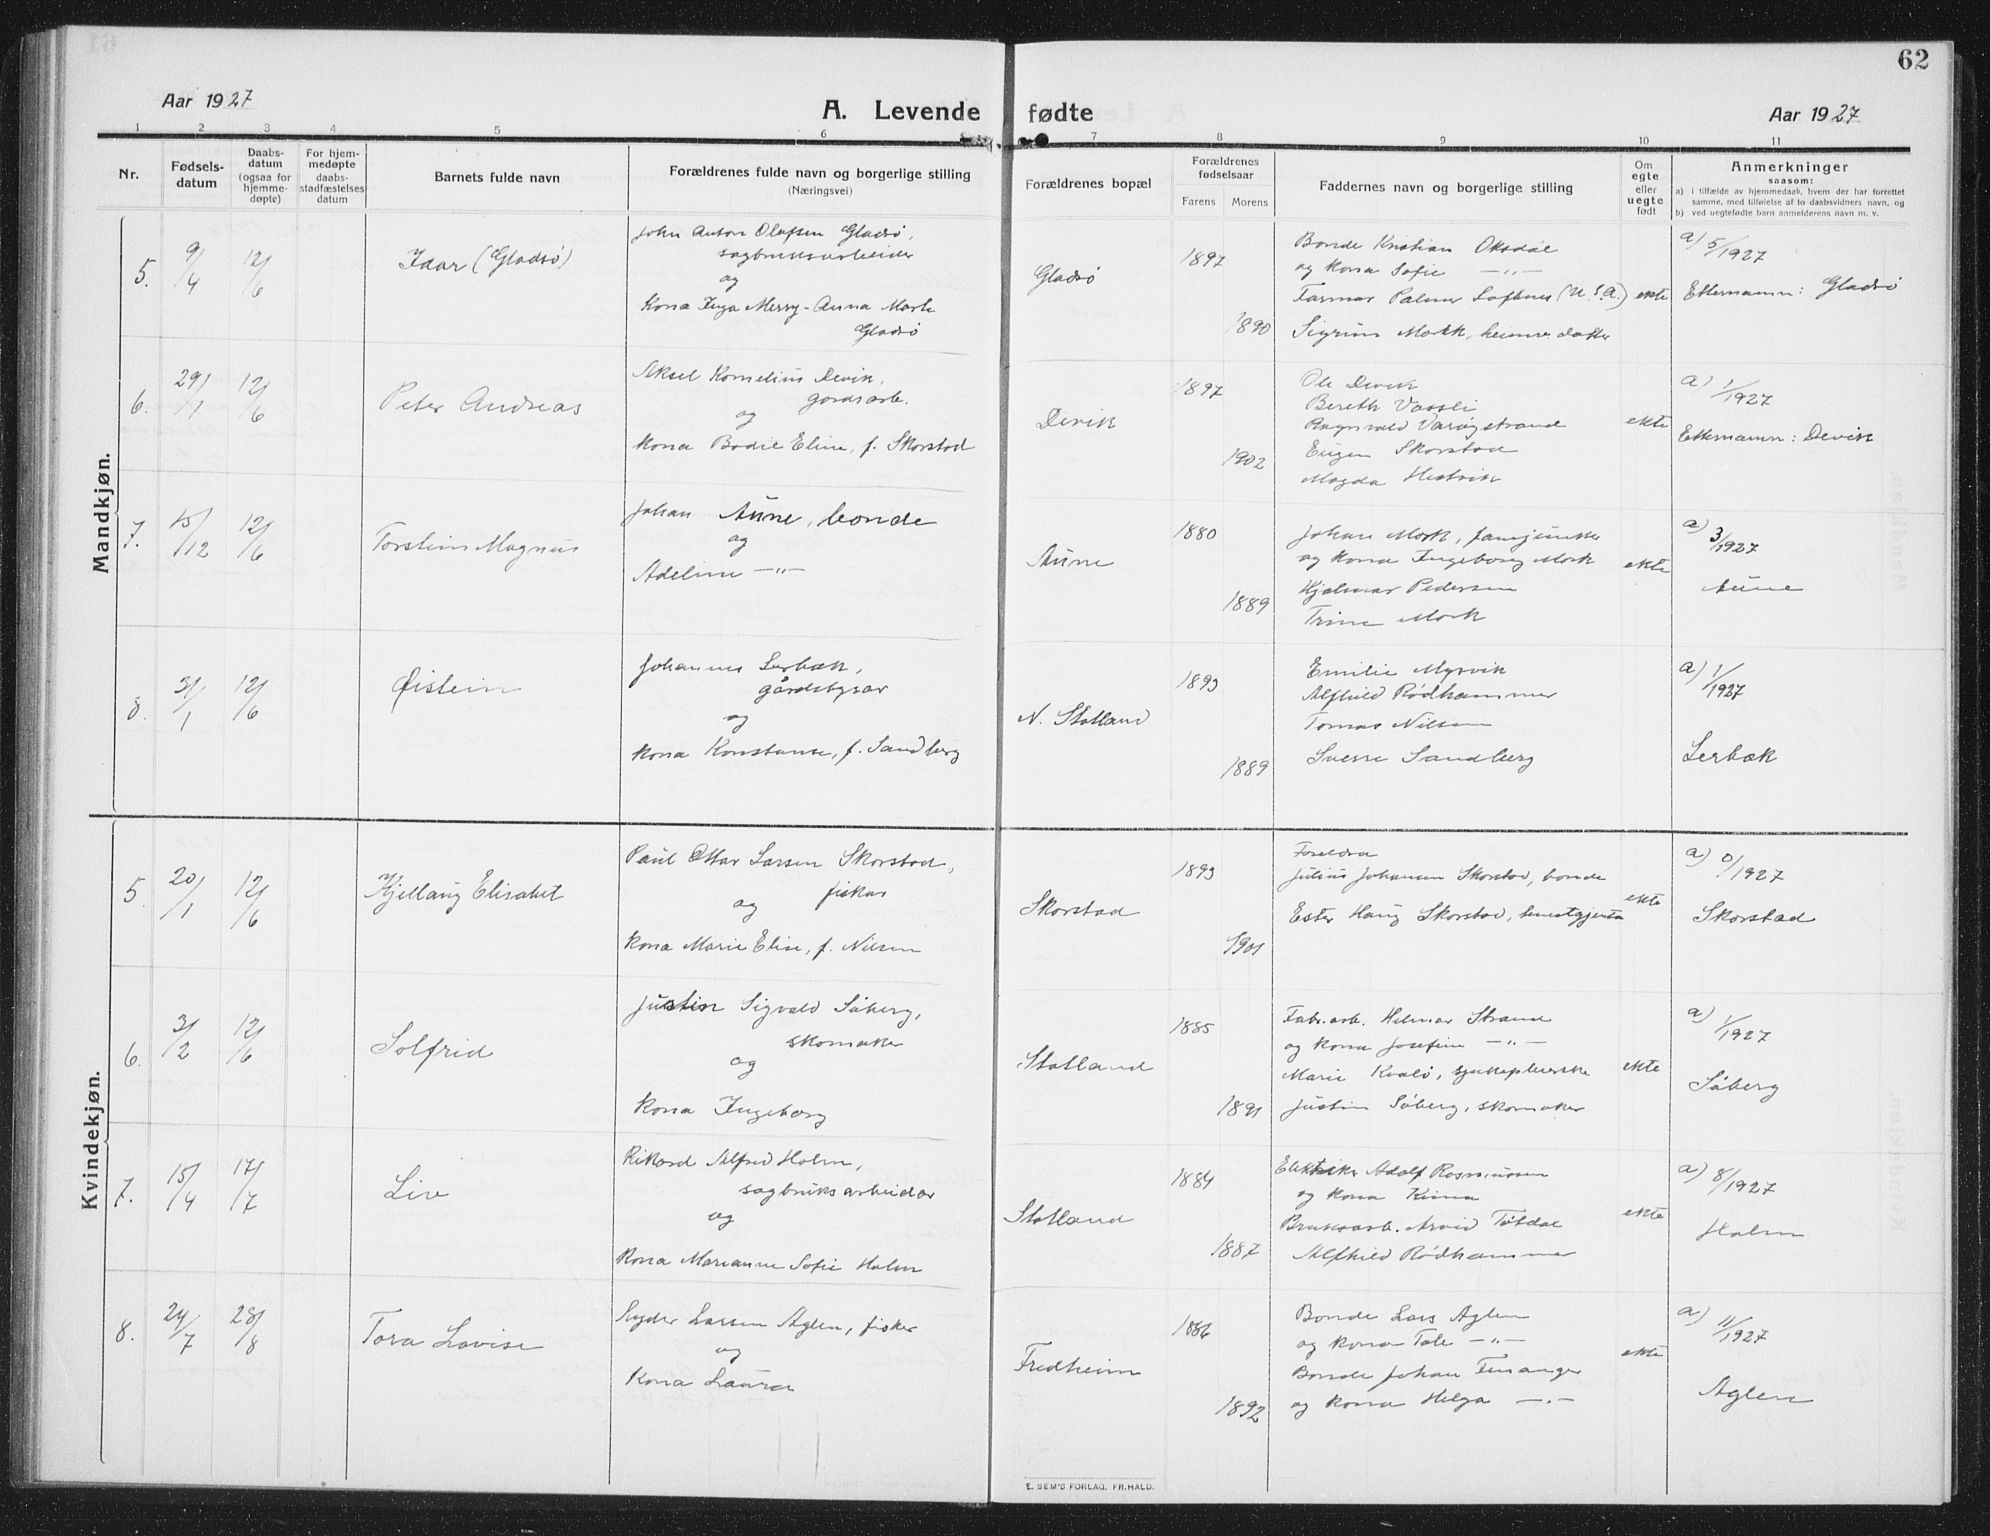 62
Aar 1927
A. Levende fødte
Aar 1927
1 2 3 4 5 6 7 8 9 10 11
Nr.
Fødsels-
datum
Daabs-
datum
(ogsaa for
hjemme-
døpte)
For hjem-
medøpte
daabs-
stadfæstelses
datum
Barnets fulde navn
Forældrenes fulde navn og borgerlige stilling
(Næringsvei)
Forældrenes bopæl
Forældrenes
fødselsaar
Farens Morens
Faddernes navn og borgerlige stilling
Om
egte
eller
uegte
født
Anmerkninger
saasom:
a) i tilfælde av hjemmedaab, hvem der har forrettet
samme, med tilføielse av to daabsvidners navn, og
b) ved uegtefødte barn anmelderens navn m. v.
Mandkjøn.
5. 9/4 12/6
Idar (Gladsø)
John Anton Olafsen Gladsø,
sagbruksarbeider
og
kona Inga Merry-Anna Mork
Gladsø
Gladsø
1897
1890
Bonde Kristian Oksdal
og kona Sofie —"—
Farmar Palmer Loftnes (U.S.A.)
Sigrun Mork, heimedatter
ekte
a) 5/1927
Etternamn: Gladsø
6. 29/1 12/6
Peter Andreas
Aksel Kornelius Devik,
gardsarb.
og
kona Bodil Eline, f. Skorstad
Devik
1897
1902
Ole Devik
Bereth Vassli
Ragnvald Varøgstrand
Eugen Skorstad
Magda Hestvik
ekte
a) 1/1927
Etternamn: Devik
7. 15/12 12/6
Torstein Magnus
Johan Aune, bonde
og
Adeline —"—
Aune
1880
1889
Johan Mork,
og kona Ingeborg Mork
Hjalmar Pedersen
Trine Mork
ekte
a) 3/1927
Aune
8. 31/1 12/6
Øistein
Johannes Lerbæk,
gårdstyrar
og
kona Konstanse, f. Sandberg
N. Statland
1893
1889
Emilie Myrvik
Alfhild Rødhammer
Tomas Nilsen
Sverre Sandberg
a) 1/1927
Lerbæk
Kvindekjøn.
5 20/1 12/6
Kjellaug Elisabet
Paul Ottar Larsen Skorstad,
fiskar
og
kona Marie Elise, f. Nilsen
Skorstad
1893
1901
Foreldra
Julius Johansen Skorstad, bonde
Ester Haug Skorstad,
ekte
a) 0/1927
Skorstad
6. 3/2 12/6
Solfrid
Justin Sigvald Såberg,
skomaker
og
kona Ingeborg
Statland
1885
1891
Fabr.arb. Helmar Strand
og kona Josefine —"—
Marie Kvalø, sjukepleierske
Justin Såberg, skomaker
ekte
a) 1/1927
Såberg
7. 15/4 17/7
Liv
Rikard Alfred Holm,
sagbruksarbeidar
og
kona Marianne Sofie Holm
Statland
1884
1887
Elektriker Adolf Rasmussen
og kona
Bruksarb. Arvid Tøtdal
Alfhild Rødhammer
ekte
a) 8/1927
Holm
8. 24/7 28/8
Tora Lovise
Syder Larsen Aglen, fisker
og
kona Laura
Fredheim
1886
1892
Bonde Lars Aglen
og kona Tale —"—
Bonde Johan Finsanger
og kona Helga —"—
ekte
a) 11/1927
Aglen
E. SEM'S FORLAG, FR.HALD.